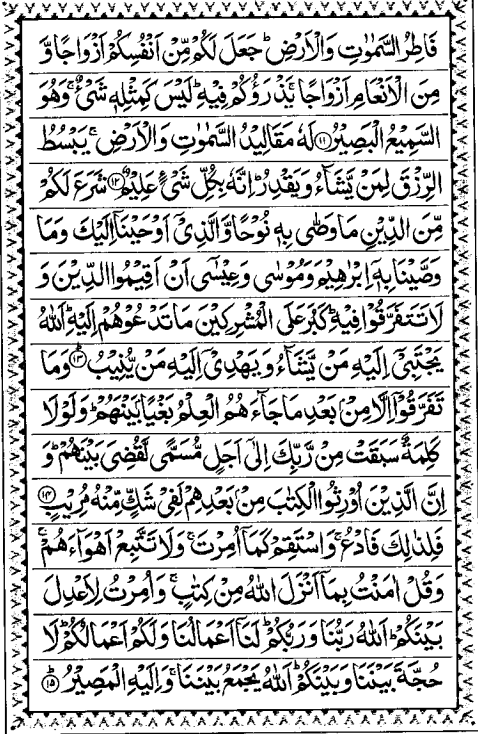 فَاطِرُ السَّمٰوٰتِ وَالْاَرْضِ ؕ جَعَلَ لَكُمْ مِّنْ اَنْفُسِكُمْ اَزْوَاجًا وَّ
مِنَ الْاَنْعَامِ اَزْوَاجًا ۚ يَذْرَؤُكُمْ فِيْهِ ؕ لَيْسَ كَمِثْلِهٖ شَیْءٌ ۚ وَهُوَ
السَّمِيْعُ الْبَصِيْرُ ﴿۱۱﴾ لَهٗ مَقَالِيْدُ السَّمٰوٰتِ وَالْاَرْضِ ۚ يَبْسُطُ
الرِّزْقَ لِمَنْ يَّشَآءُ وَيَقْدِرُ ؕ اِنَّهٗ بِكُلِّ شَیْءٍ عَلِيْمٌ ﴿۱۲﴾ شَرَعَ لَكُمْ
مِّنَ الدِّيْنِ مَا وَصّٰى بِهٖ نُوْحًا وَّالَّذِیْۤ اَوْحَيْنَاۤ اِلَيْكَ وَمَا
وَصَّيْنَا بِهٖۤ اِبْرٰهِيْمَ وَمُوْسٰى وَعِيْسٰۤى اَنْ اَقِيْمُوا الدِّيْنَ وَ
لَا تَتَفَرَّقُوْا فِيْهِ ؕ كَبُرَ عَلَى الْمُشْرِكِيْنَ مَا تَدْعُوْهُمْ اِلَيْهِ ؕ اَللّٰهُ
يَجْتَبِیْۤ اِلَيْهِ مَنْ يَّشَآءُ وَيَهْدِیْۤ اِلَيْهِ مَنْ يُّنِيْبُ ﴿۱۳﴾ وَمَا
تَفَرَّقُوْۤا اِلَّا مِنْۢ بَعْدِ مَا جَآءَهُمُ الْعِلْمُ بَغْيًۢا بَيْنَهُمْ ؕ وَلَوْلَا
كَلِمَةٌ سَبَقَتْ مِنْ رَّبِّكَ اِلٰۤى اَجَلٍ مُّسَمًّى لَّقُضِیَ بَيْنَهُمْ ؕ وَ
اِنَّ الَّذِيْنَ اُوْرِثُوا الْكِتٰبَ مِنْۢ بَعْدِهِمْ لَفِیْ شَكٍّ مِّنْهُ مُرِيْبٍ ﴿۱۴﴾
فَلِذٰلِكَ فَادْعُ ۚ وَاسْتَقِمْ كَمَاۤ اُمِرْتَ ۚ وَلَا تَتَّبِعْ اَهْوَآءَهُمْ ۚ
وَقُلْ اٰمَنْتُ بِمَاۤ اَنْزَلَ اللّٰهُ مِنْ كِتٰبٍ ۚ وَاُمِرْتُ لِاَعْدِلَ
بَيْنَكُمْ ؕ اَللّٰهُ رَبُّنَا وَرَبُّكُمْ ؕ لَنَاۤ اَعْمَالُنَا وَلَكُمْ اَعْمَالُكُمْ ؕ لَا
حُجَّةَ بَيْنَنَا وَبَيْنَكُمْ ؕ اَللّٰهُ يَجْمَعُ بَيْنَنَا ۚ وَاِلَيْهِ الْمَصِيْرُ ﴿۱۵﴾